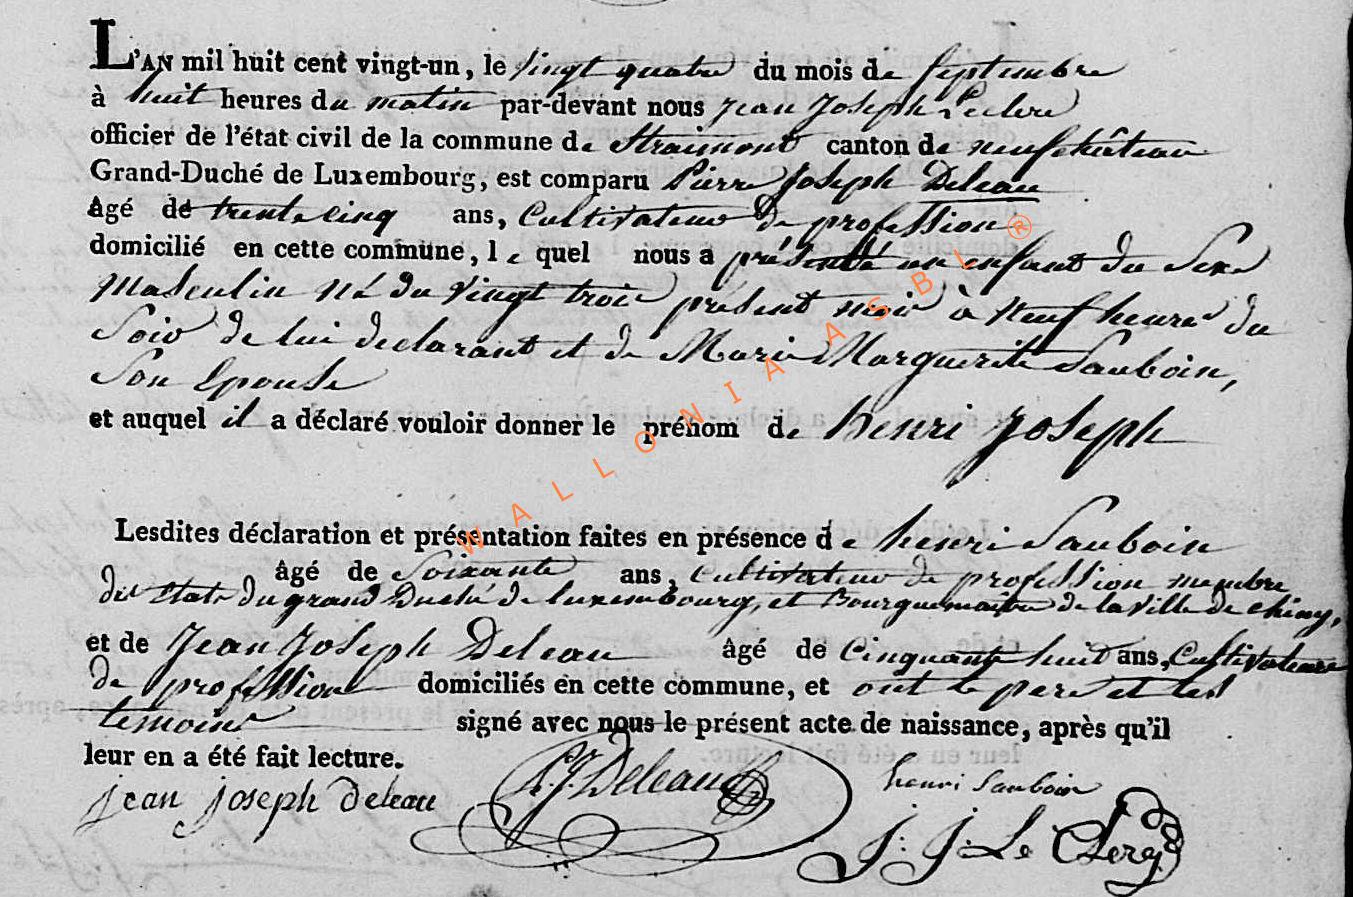 L'AN mil huit cent vingt-un, le vingt quatre du mois de septembre
à huit heures du matin par-devant nous jean joseph Leclere
officier de l'état civil de la commune de Straimont canton de neufchâteau
Grand-Duché de Luxembourg, est comparu Pierre Joseph Deleau
âgé de trente cinq ans, Cultivateur de profession
domicilié en cette commune, le quel nous a présenté un enfant du Sexe
masculin né du vingt trois présent mois à neuf heures du
Soir de lui declarant et de Marie Marguerite Sauboin,
Son Epouse
et auquel il a déclaré vouloir donner le prénom de henri Joseph
Lesdites déclaration et présentation faites en présence de henri Sauboin
âgé de Soixante ans, cultivateur de profession membre
des etats du grand Duché de Luxembourg, et Bourguemaitre de la ville de Chiny,
et de Jean Joseph Deleau âgé de Cinquante huit ans, Cultivateur
de profession domiciliés en cette commune, et ont le pere et les
témoins signé avec nous le présent acte de naissance, après qu'il
leur en a été fait lecture.
jean joseph deleau P.J. Deleau henri Sauboin
J: J: Le Clerq
WALLONIA ASBL ®